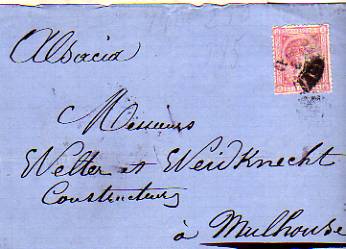 Alsacia
Messieurs
Welter et Weidknecht
Constructeurs
à Mulhouse